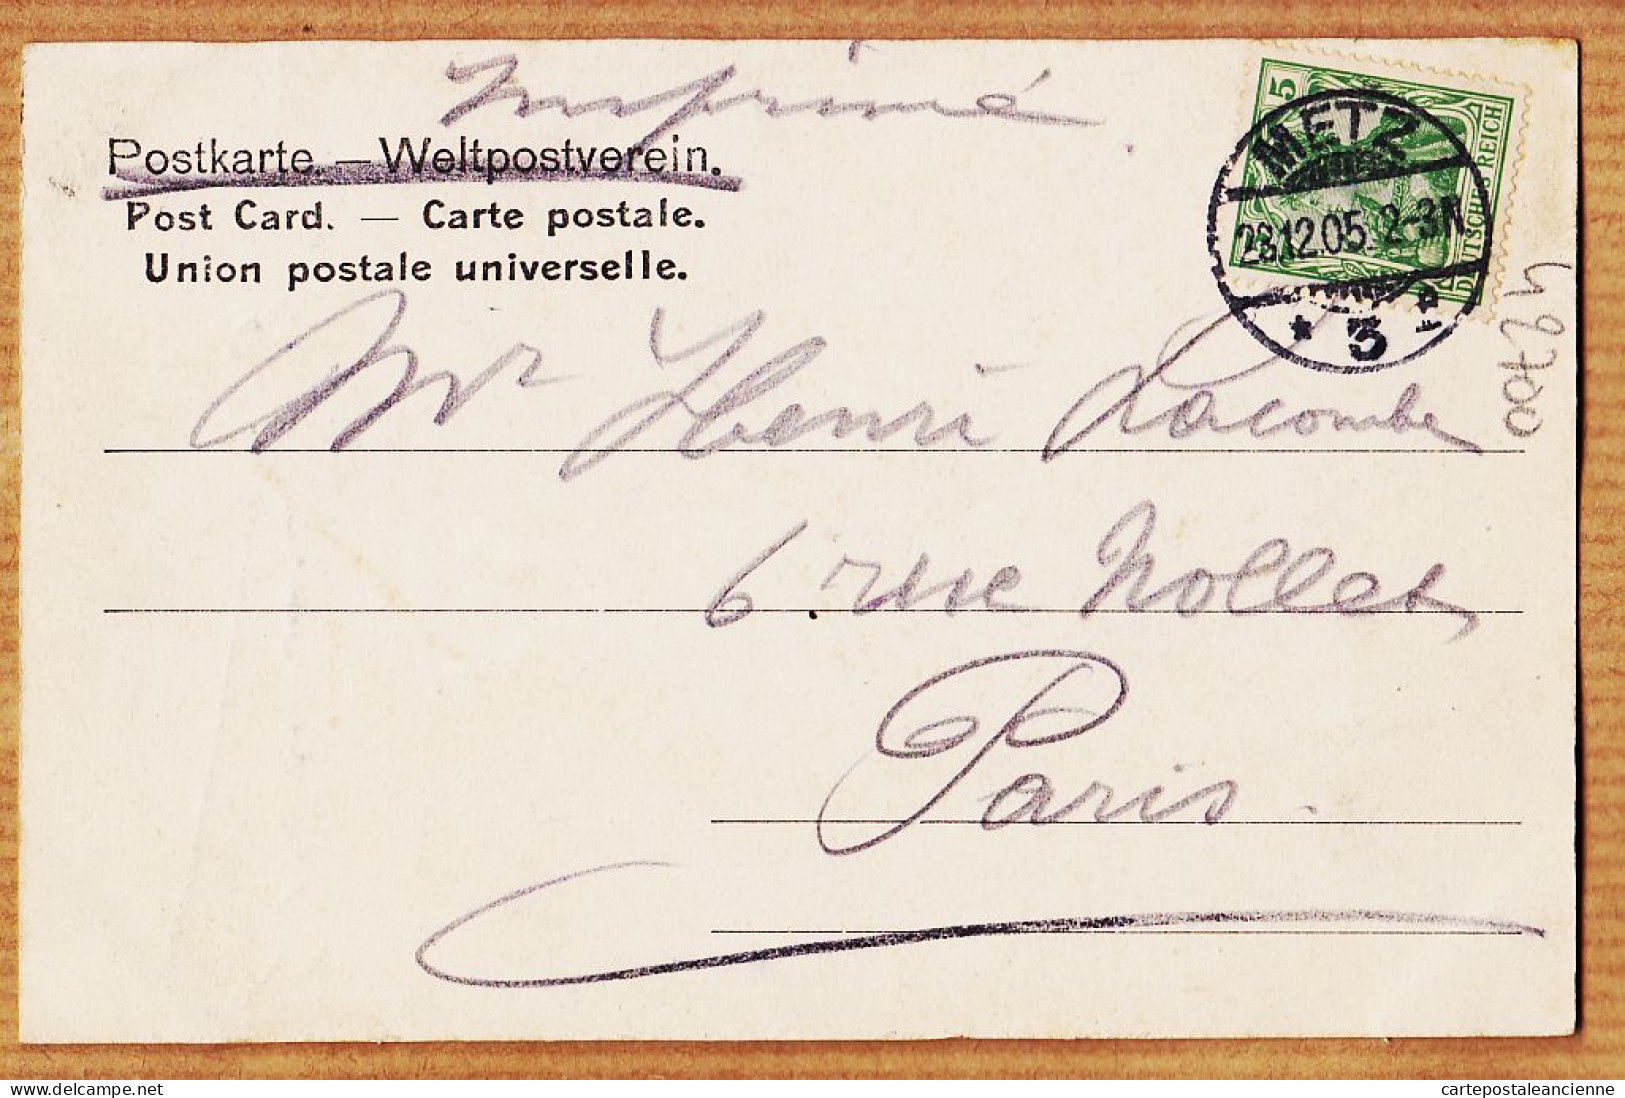 Imprimé
Postkarte. — Weltpostverein.
Post Card. — Carte postale.
Union postale universelle.
5
DEUTSCHES REICH
METZ
23.12.05. 2-3N
* 3
Mr Henri Lacombe
6 rue Nollet
Paris.
cartepostaleancienne
www.delcampe.net